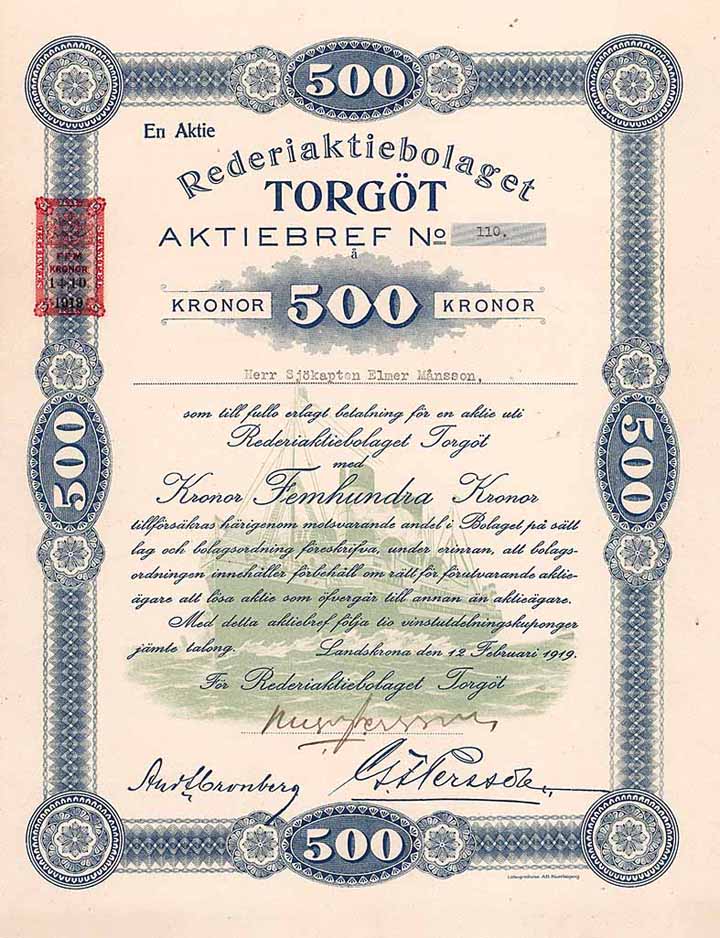 500
En Aktie
Rederiaktiebolaget
TORGÖT
AKTIEBREF No 110.
à
KRONOR 500 KRONOR
STÄMPEL
STÄMPEL
FEM
KRONOR
14.10.
1919
Herr Sjökapten Elmer Månsson,
som till fullo erlagt betalning för en aktie uti
Rederiaktiebolaget Torgöt
med
Kronor Femhundra Kronor
tillförsäkras härigenom motsvarande andel i Bolaget på sätt
lag och bolagsordning föreskrifva, under erinran, att bolags-
ordningen innehåller förbehåll om rätt för förutvarande aktie-
ägare att lösa aktie som öfvergår till annan än aktieägare.
Med detta aktiebref följa tio vinstutdelningskuponger
jämte talong. Landskrona den 12 Februari 1919.
För Rederiaktiebolaget Torgöt
500
500
Cronberg
Persson
500